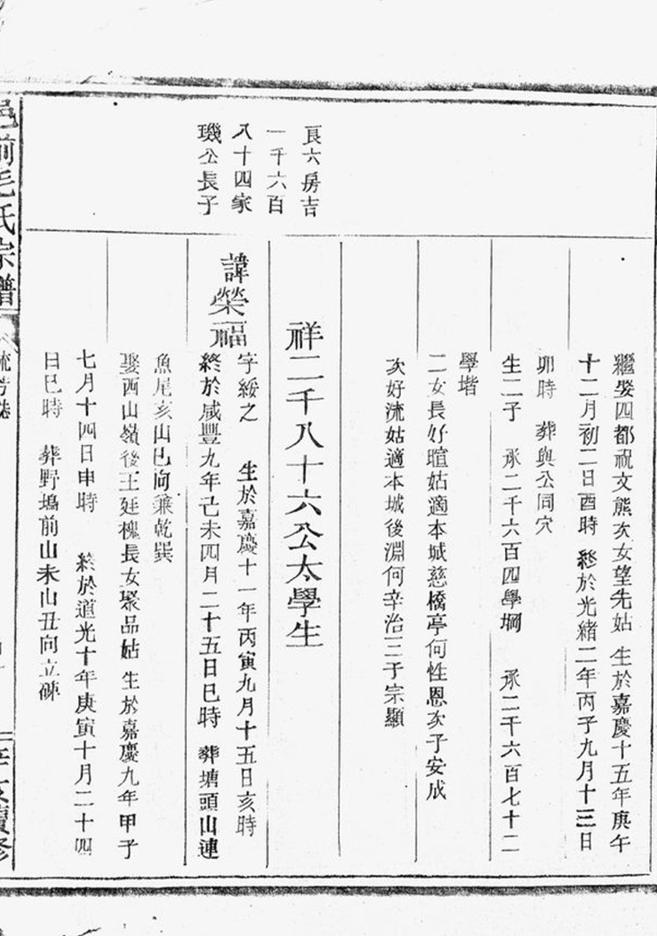 繼娶四都祝文熊次女望先姑 生於嘉慶十五年庚午
十二月初二日酉時 終於光緒二年丙子九月十三日
卯時 葬與公同穴
生二子 承二千六百四學堈 承二千六百七十二
學堦
二女長好暄姑適本城慈橋亭何性恩次子安成
次好流姑適本城後淵何辛治三子宗顯
良六房吉
一千六百
八十四家
璣公長子
祥二千八十六公太學生
諱榮福
字綏之 生於嘉慶十一年丙寅九月十五日亥時
終於咸豐九年己未四月二十五日巳時 葬塘頭山連
魚尾亥山巳向兼乾巽
娶西山嶺後王廷槐長女聚品姑 生於嘉慶九年甲子
七月十四日申時 終於道光十年庚寅十月二十四
日巳時 葬野塢前山未山丑向立碑
邑前毛氏宗譜
流芳誌
續修